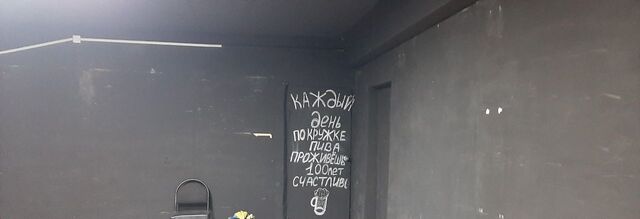 КАЖДЫЙ
ДЕНЬ
ПО КРУЖКЕ
ПИВА
ПРОЖИВЁШЬ
100 лет
СЧАСТЛИВО